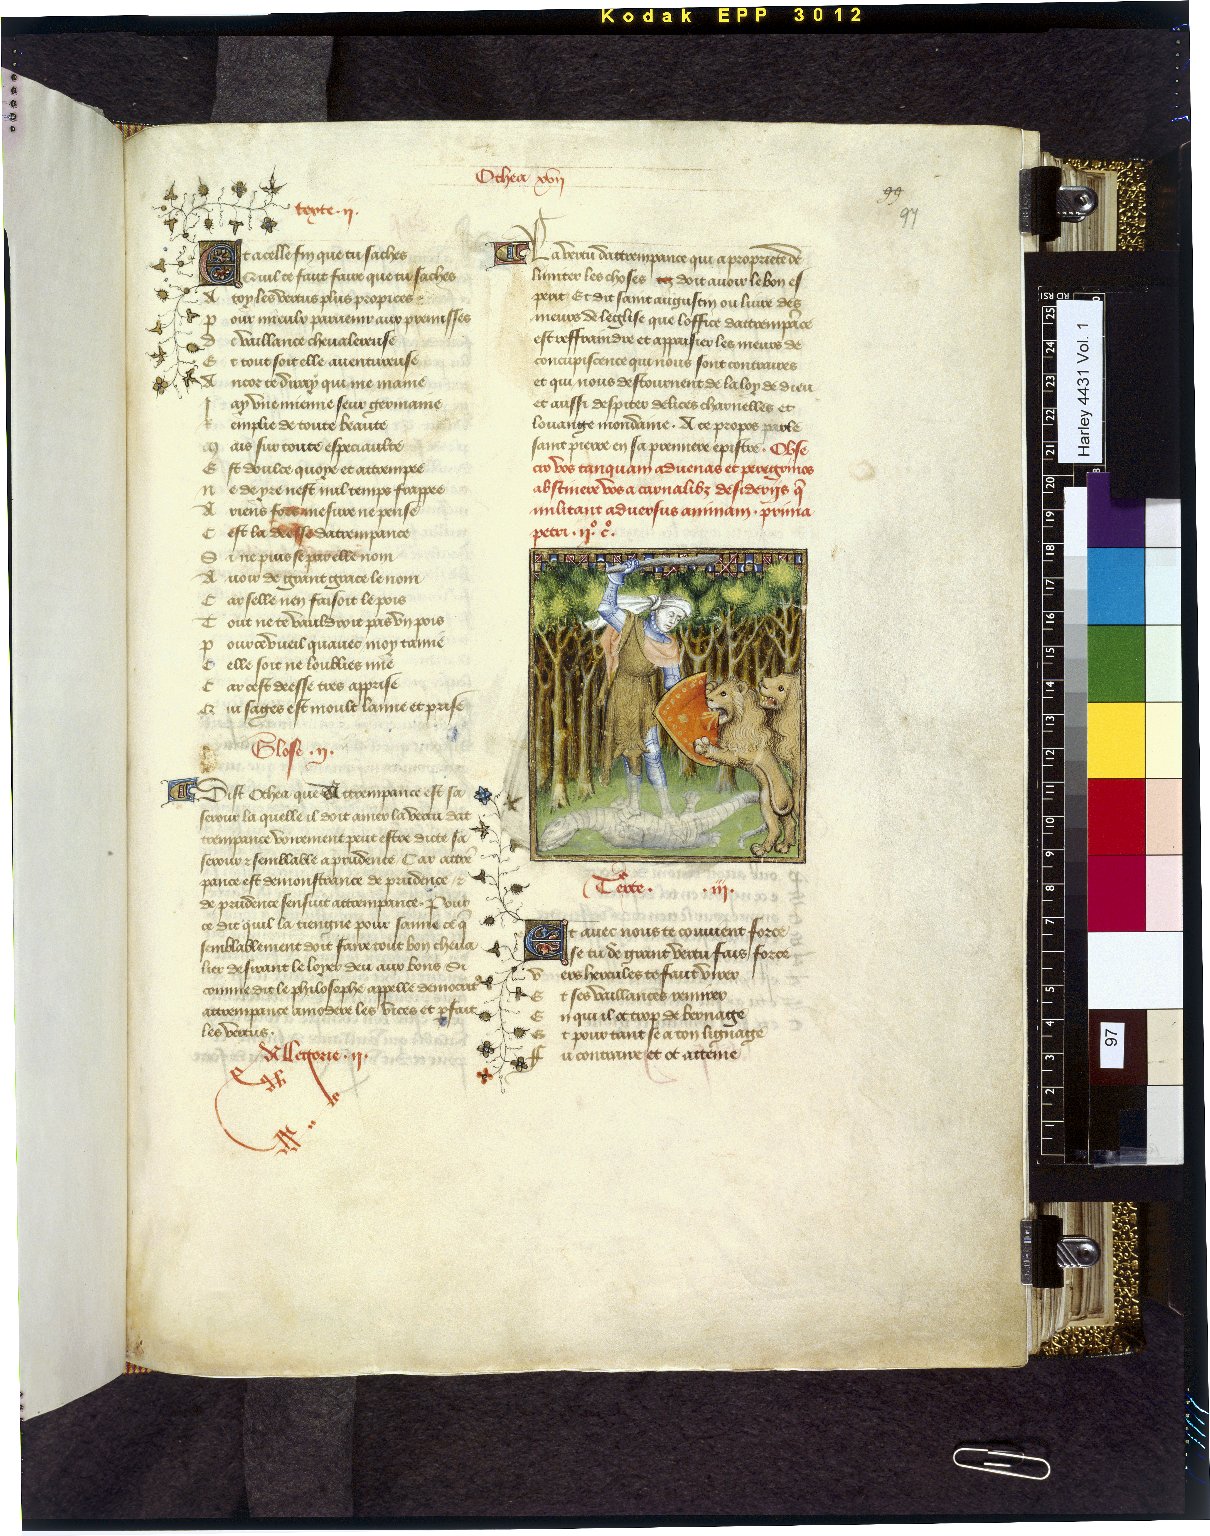 Kodak EPP 3012
Othea xvii
99
97
texte .ii.
Et a celle fin que tu saches
Quil te fault faire que tu saches
A toy les vertus plus propices
Pour mieulx parvenir aux premisses
De vaillance chevalereuse
Et tout soit elle aventureuse
Ancor te diray qui me maine
J ay une mienne seur germaine
Remplie de toute beaute
Mais sur toute especiaulte
Est doulce quoye et attrempee
Ne de yre nest nul temps frappee
A riens fors mesure ne pense
C est la deesse dattrempance
Si ne puis se par elle non
Avoir de grant grace le nom
Car selle nen faisoit le pois
Tout ne te vauldroit pas un pois
Pour ce vueil quavec moy taime
Celle soit ne loublies mie
Car cest deesse tres apprise
Qui sages est moult laime et prise
Glose .ii.
Dist Othea que Attrempance est sa
serour la quelle il doit amer la vertu dat
trempance vrayement peut estre dicte sa
serour et semblable a prudence Car attre
pance est demonstrance de prudence et
de prudence sensuit attrempance. Pour
ce dit quil la tiengne pour samie ce q
semblablement doit faire tout bon cheva
lier desirant le loyer deu aux bons Si
comme dit le philosophe appelle democrit
attrempance amodere les vices et pfait
les vertus.
Allegorie .ii.
La vertu dattrempance qui a propriete de
limiter les choses doit avoir le bon es
perit Et dit saint augustin ou livre des
meurs de leglise que loffice dattrempace
est reffraindre et appaisier les meurs de
concupiscence qui nous sont contraires
et qui nous destournent de la loy de dieu
et aussi despiter delices charnelles et
louange mondaine. A ce propos parle
saint pierre en sa premiere epistre. Obse
cro vos tanquam advenas et peregrinos
abstinere vos a carnalibz desideriis q
militant adversus animam. prima
petri. ii° c°.
Texte. .iii.
Et avec nous te convient force
se tu de grant vertu fais force
Vers hercules te fault virer
Et ses vaillances remirer
En qui il ot trop de bernage
Et pour tant se a ton lignage
Fu contraire et ot attaine
Harley 4431 Vol. 1
RD RSI
25
24
23
22
21
20
19
18
17
16
15
14
13
12
10
9
8
7
5
4
3
2
1
97